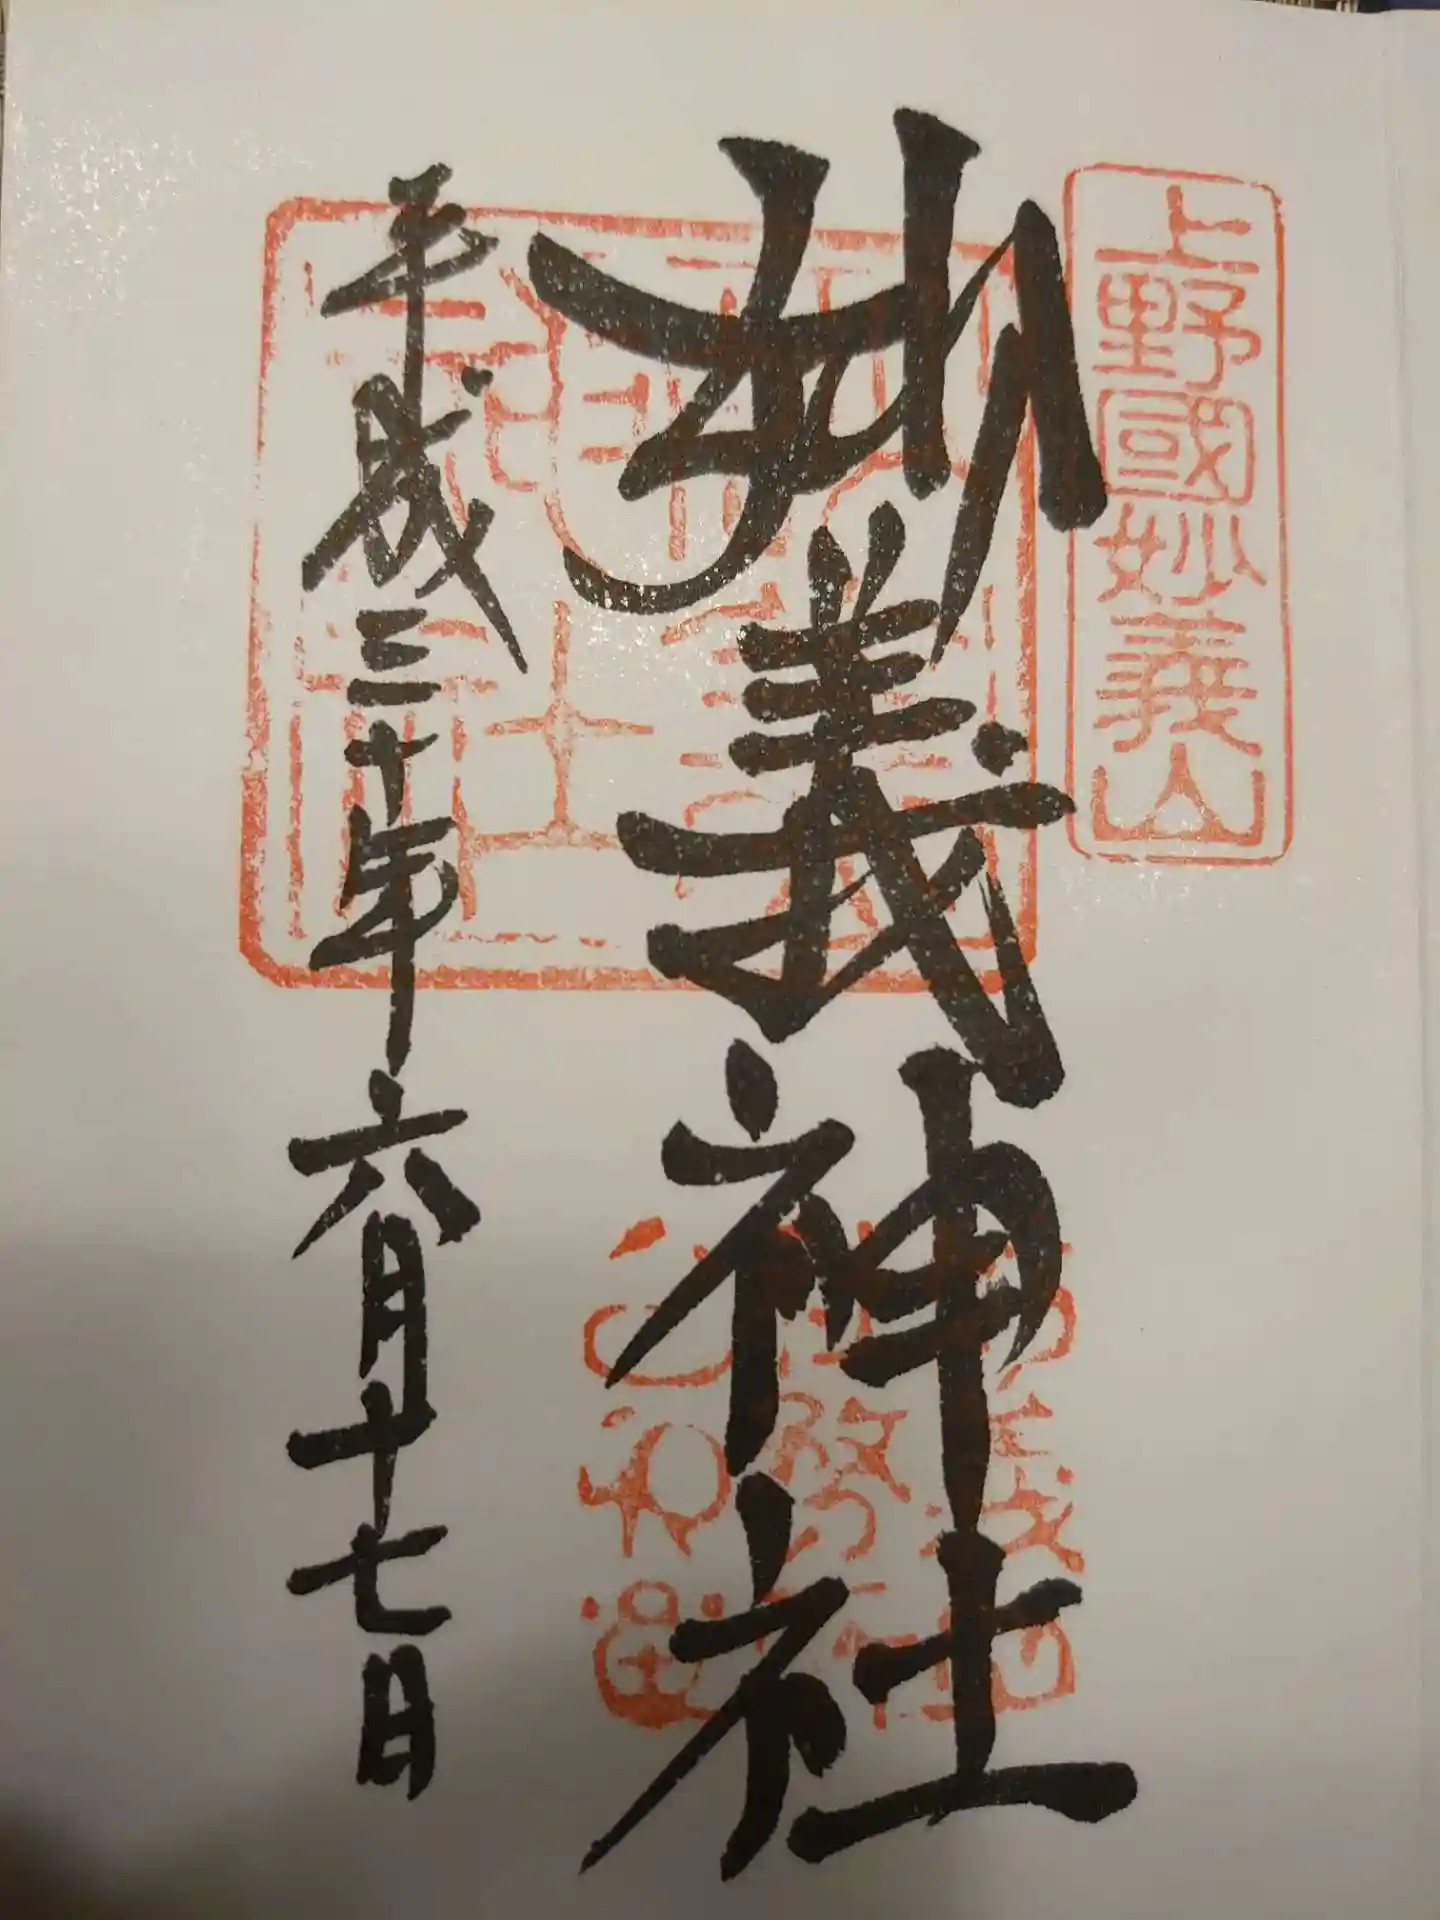 上野國妙義山
妙義神社
平成三十年六月十七日